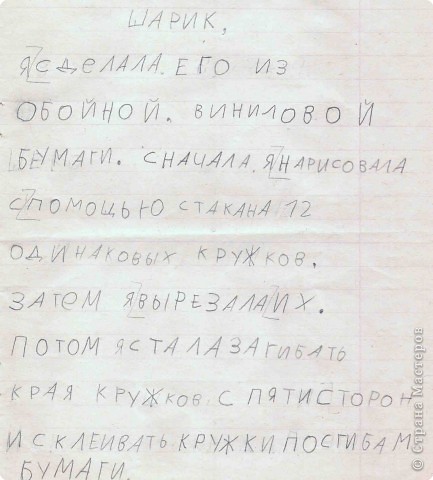 ШАРИК,
Я СДЕЛАЛА. ЕГО ИЗ
ОБОЙНОЙ. ВИНИЛОВОЙ
БУМАГИ. СНАЧАЛА. Я НАРИСОВАЛА
С ПОМОЩЬЮ СТАКАНА 12
ОДИНАКОВЫХ КРУЖКОВ.
ЗАТЕМ Я ВЫРЕЗАЛА ИХ.
ПОТОМ Я СТАЛА ЗАГИБАТЬ
КРАЯ КРУЖКОВ С ПЯТИ СТОРОН
И СКЛЕИВАТЬ КРУЖКИ ПО СГИБАМ
БУМАГИ.
© Страна Мастеров